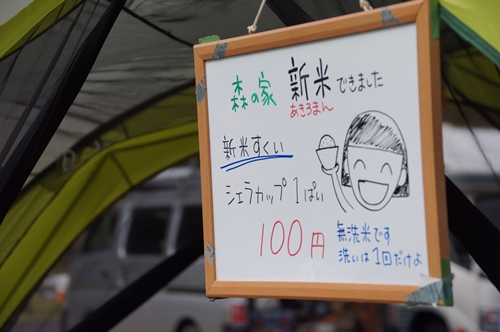 森の家 新米できました
あきろまん
新米すくい
シェラカップ1ぱい
100円
無洗米です
洗いは1回だけよ